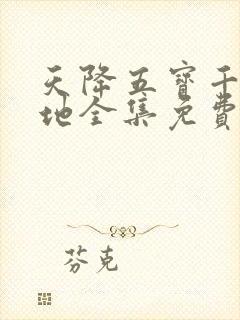 天降五寶千
地全集免費
芬克